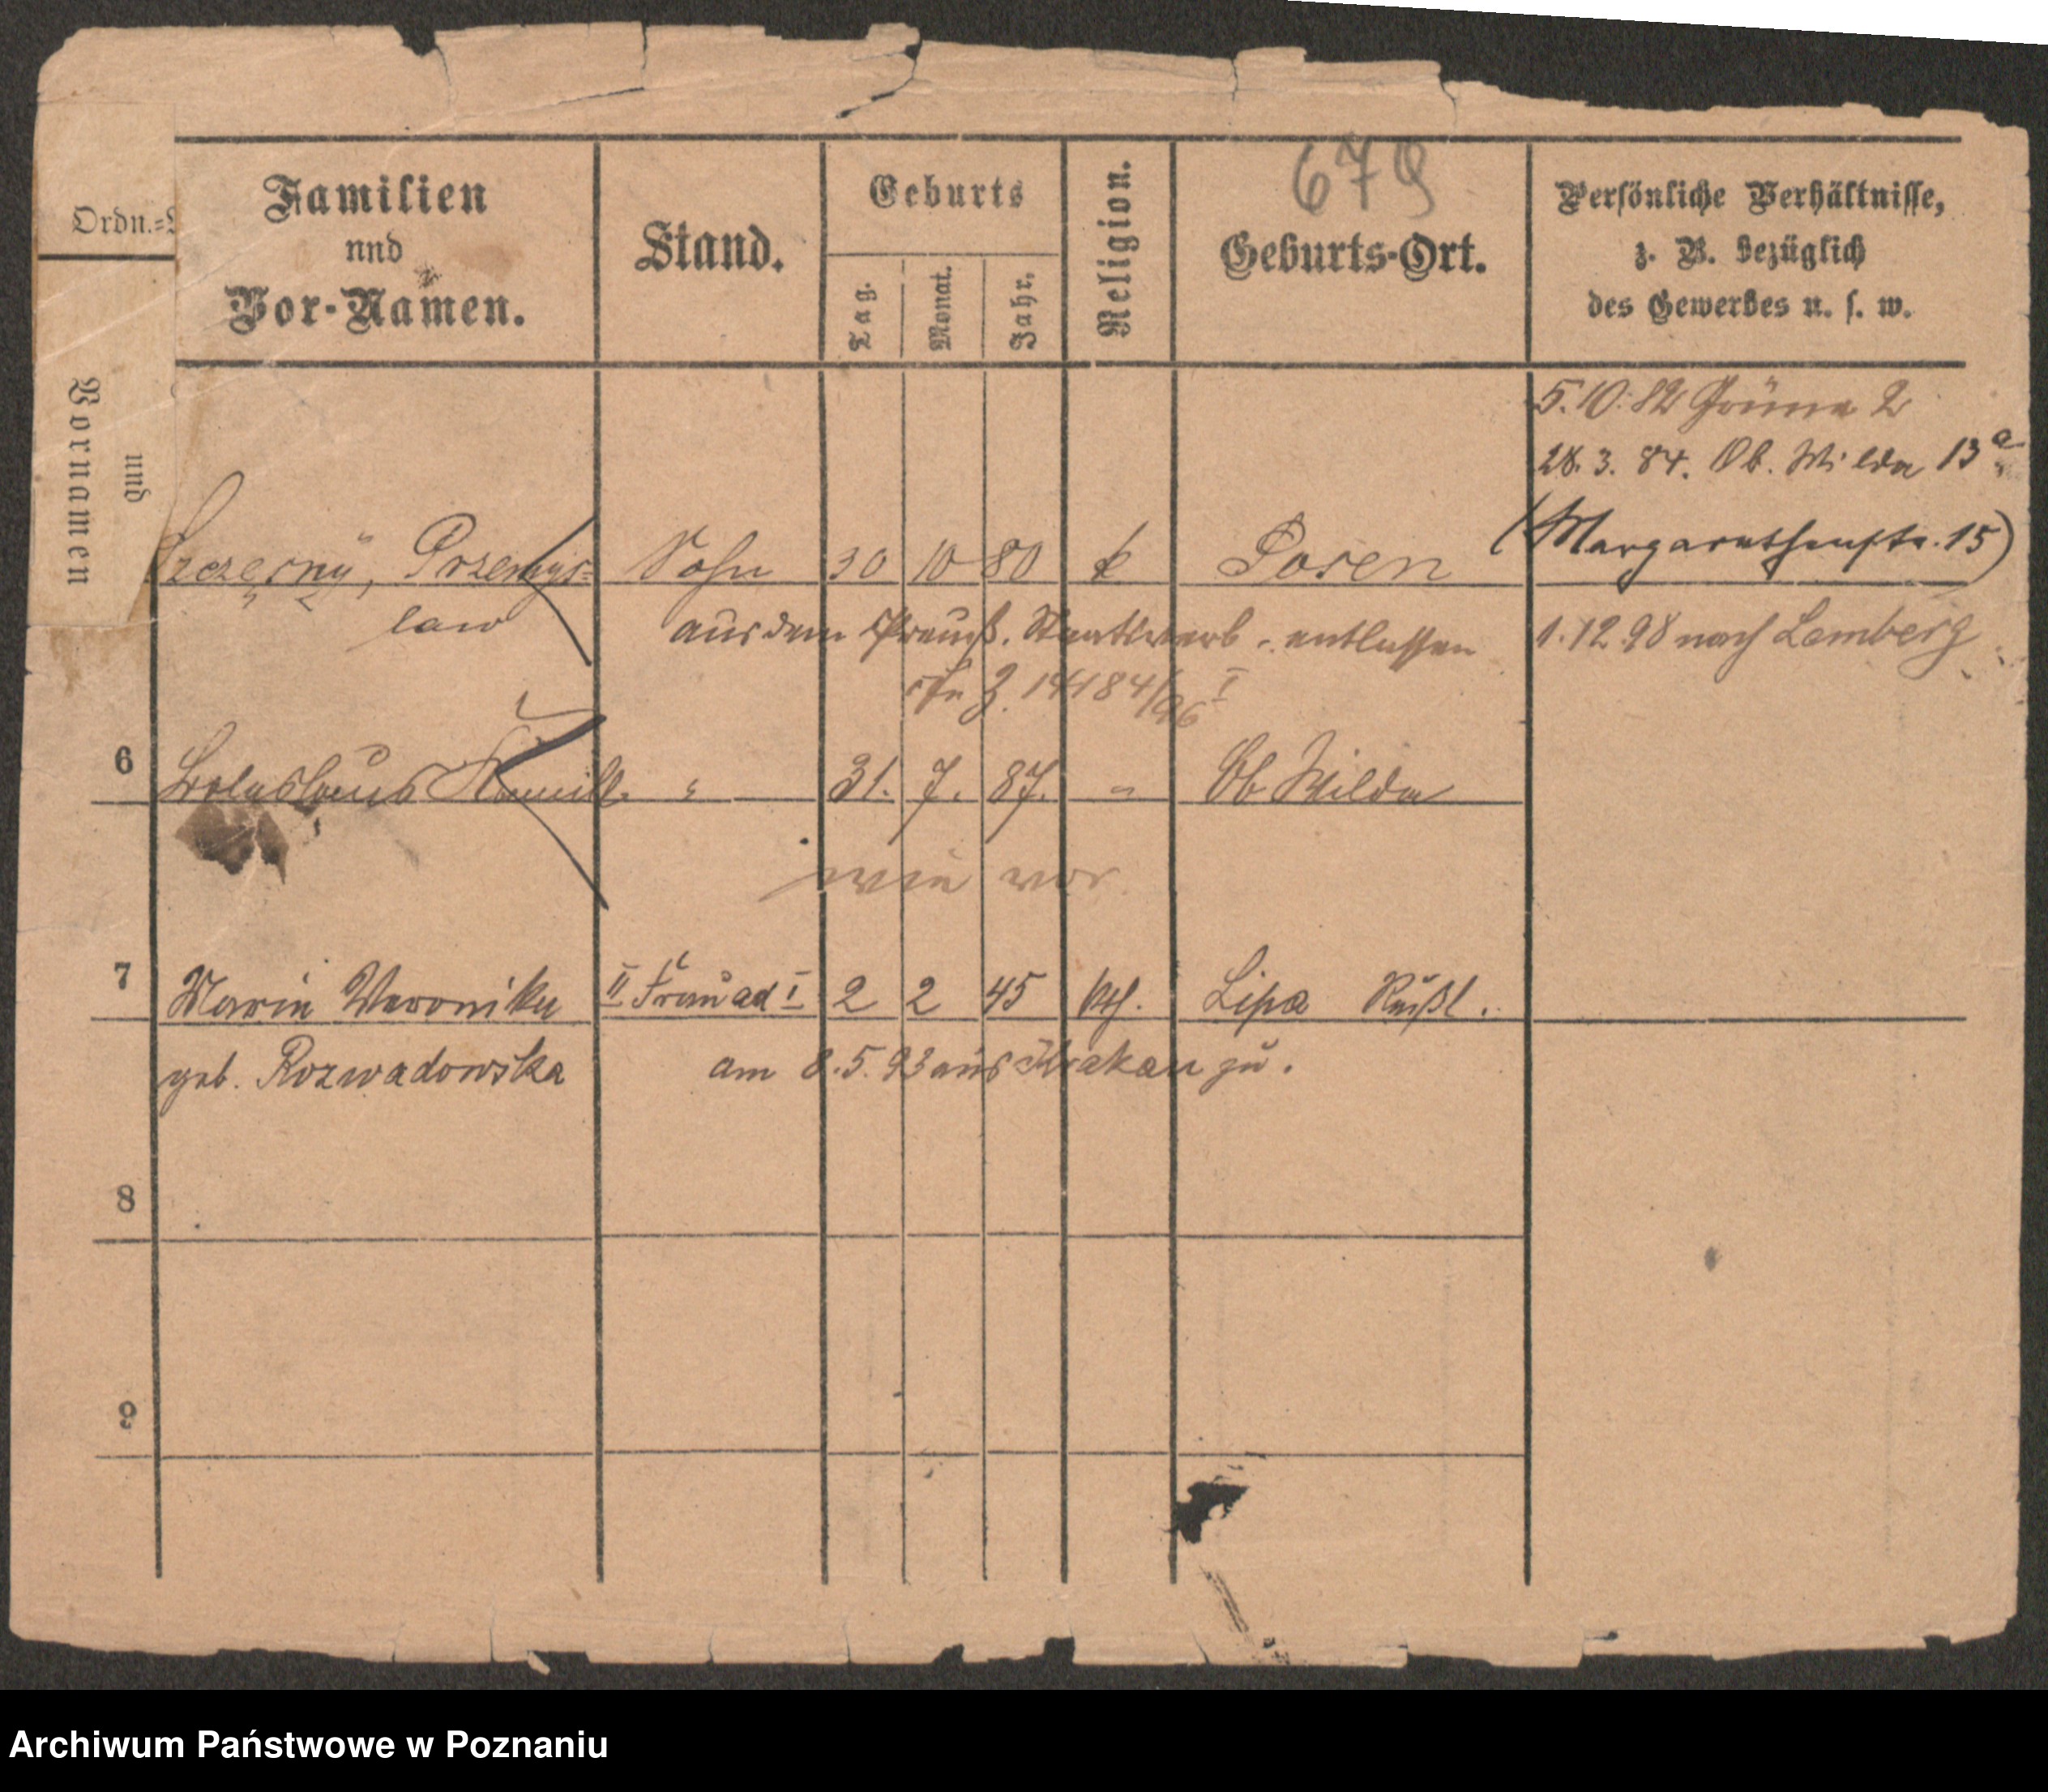 679
Ordn.-
Familien
und
Vor-Namen.
Stand.
Geburts
Tag.
Monat.
Jahr.
Religion.
Geburts-Ort.
Persönliche Verhältnisse,
z. B. bezüglich
des Gewerbes u. s. w.
und
Vornamen
5.10.82 Grüne 2
28.3.84. Ob. Wilda 13a
(Margarethenstr. 15)
Szczęsny, Przemys=
law
Sohn 30 10 80 k Posen
aus dem Preuß. Staatsverb. entlassen
1.12.98 nach Lemberg
14184/96 I
6 Boleslaus Kamill " 31. 7. 87. " Ob Wilda
wie vor
7 Maria Veronika II Frau ad I 2 2 45 kth. Lipa Rußl.
geb. Rozwadowska am 8.5.93 aus Krakau zu.
8
9
Archiwum Państwowe w Poznaniu